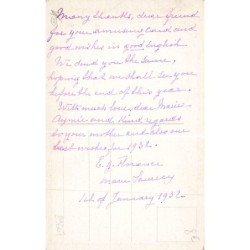 Many thanks, dear friend
for your amusing card and
good wishes in good English.
We send you the same,
hoping that we shall see you
before the end of this year.
With much love, dear
and kind regards
to your mother and also our
best wishes for 1932.
E. J.
1st of January 1932-